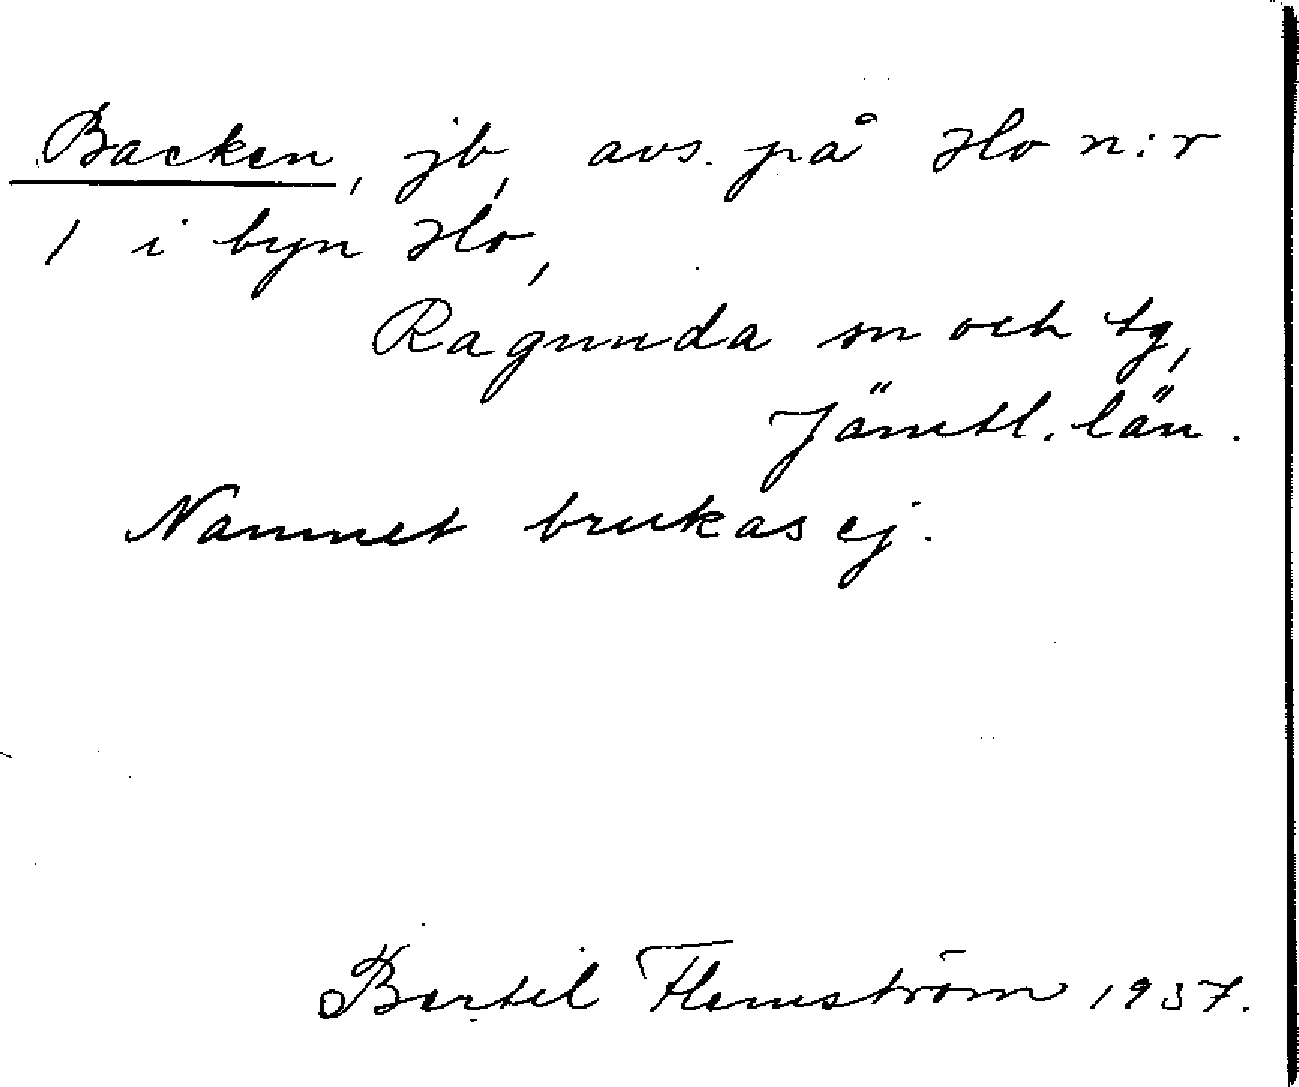 Backen, jb, avs. på Ho n:r
1 i byn Ho,
Ragunda sn och tg,
Jämtl. län.
Namnet brukas ej.
Bertil Flemström 1937.